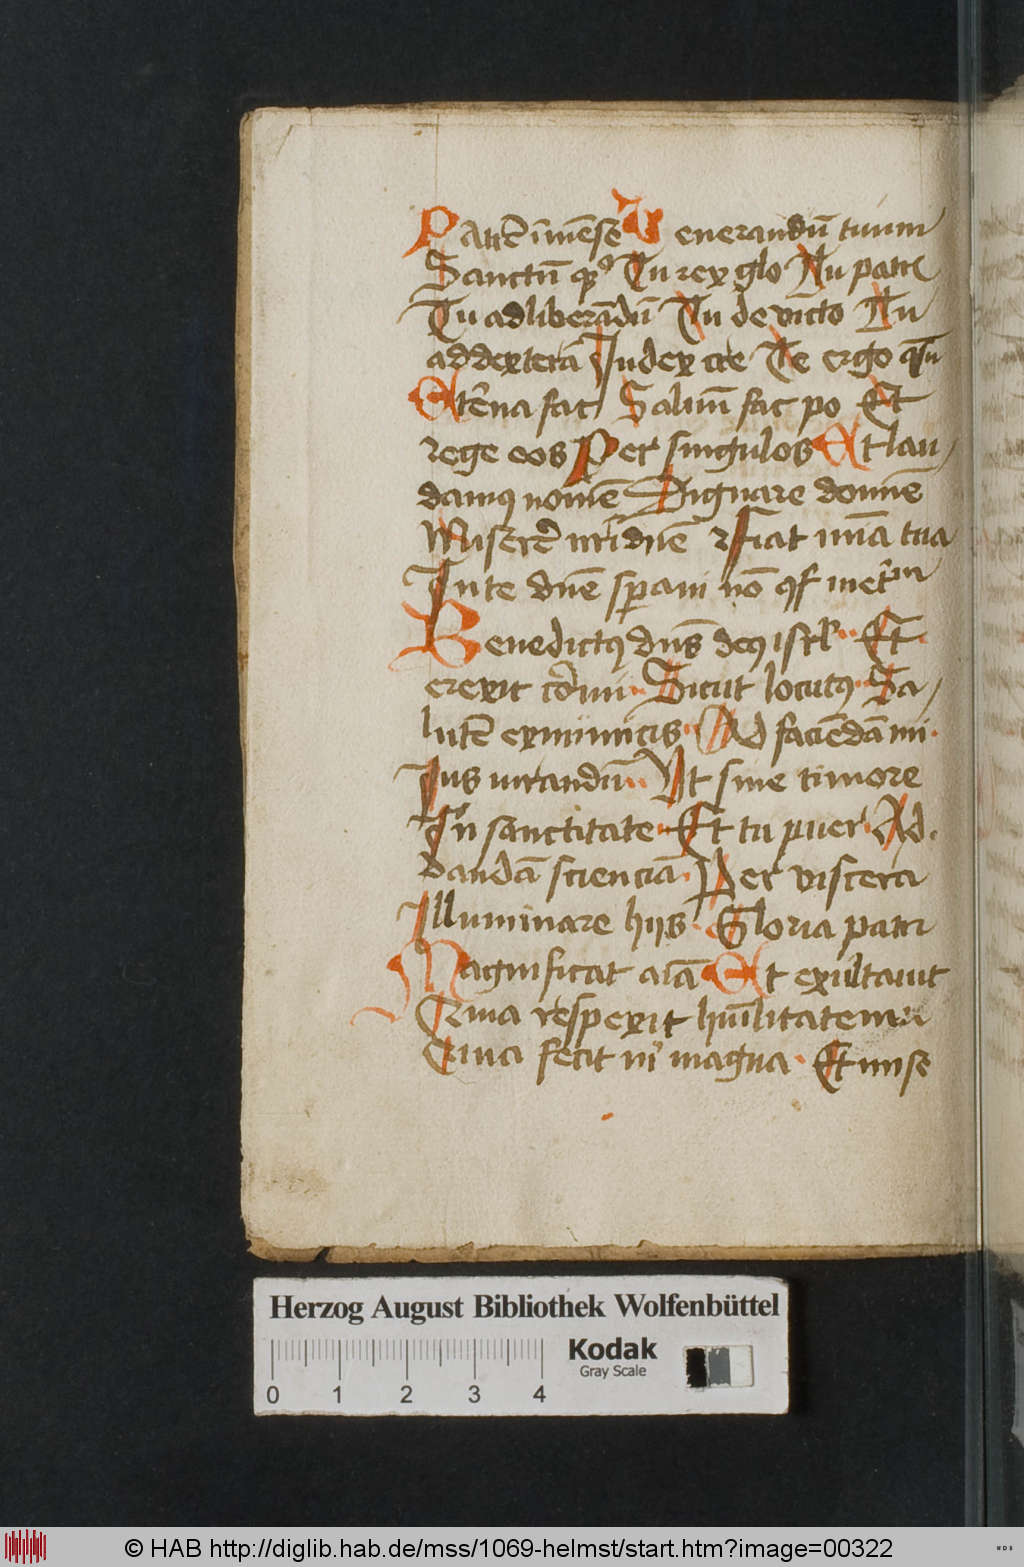 Patrē īmēse Venerandū tuum
Sanctū qꝫ Tu rex glo Tu patri
Tu ad liberādū Tu devīcto Tu
ad dexterā Judex cre Te ergo qūs
Et̄na fac Salvū fac po Et
rege eos Per singulos Et lau
damꝰ nomē Dignare domīe
Miserē nrī dnē Fiat mīa tua
In te dnē speravi nō
Benedictꝰ dns̄ deꝰ isrl Et
erexit cornu Sicut locutꝰ Sa
lutē ex inimicis Ad faciēdā mi
Jus iurandū Ut sine timore
In sanctitate Et tu puer Ad
dandā scienciā Per viscera
Illuminare hijs Gloria patri
Magnificat aīa Et exultavit
Quia respexit hūilitatem
Quia fecit m magna Et mise
Herzog August Bibliothek Wolfenbüttel
Kodak
Gray Scale
0 1 2 3 4
© HAB http://diglib.hab.de/mss/1069-helmst/start.htm?image=00322